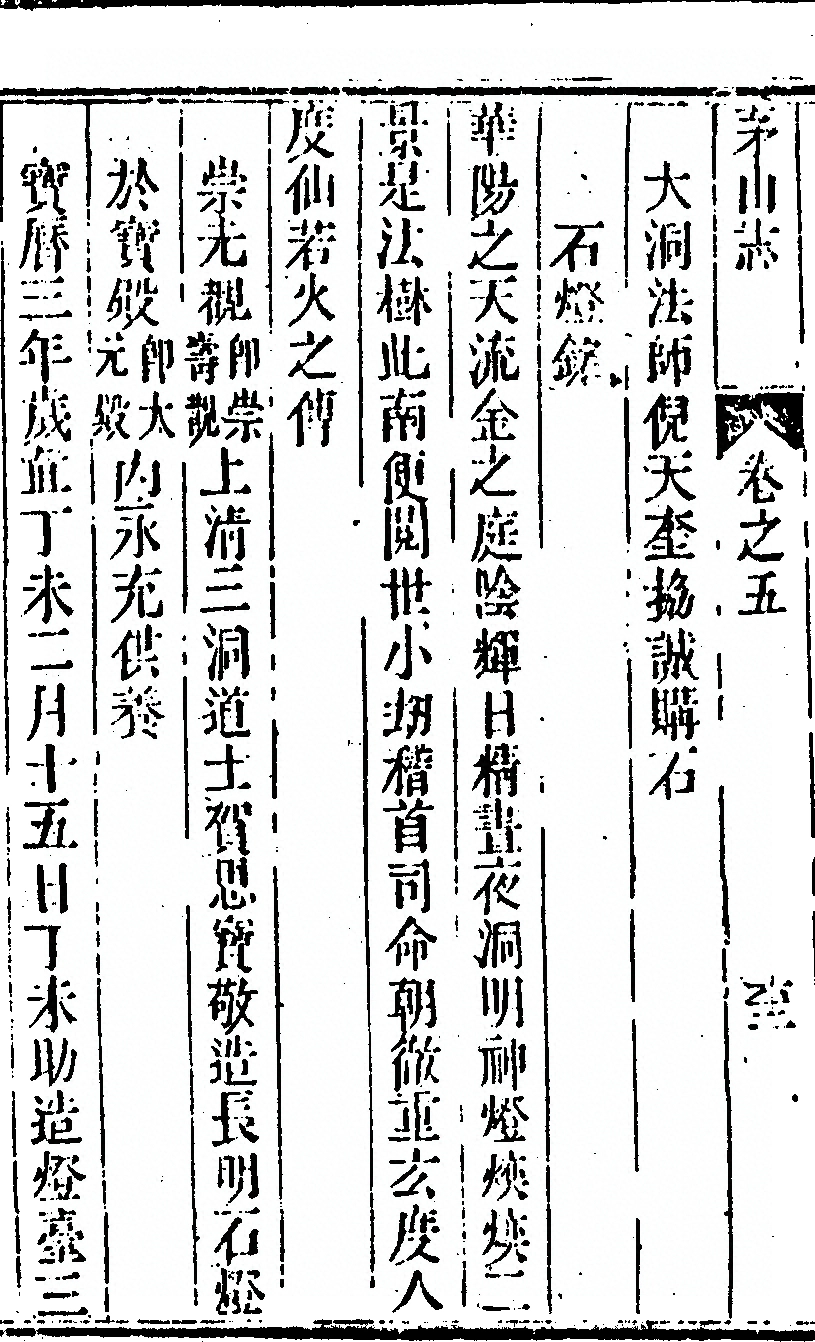 茅山志 卷之五
大洞法師倪天奎拹誠購石
石燈銘
華陽之天流金之庭陰輝日精晝夜洞明神燈煐煐二
景是法樹此南便閱世小刼稽首司命朝徹重玄度人
度仙若火之傳
崇元觀卽崇壽觀上清三洞道士賀思寶敬造長明石燈
於寶殿卽太元殿內永充供養
寶曆三年歲直丁未二月十五日丁未助造燈臺三